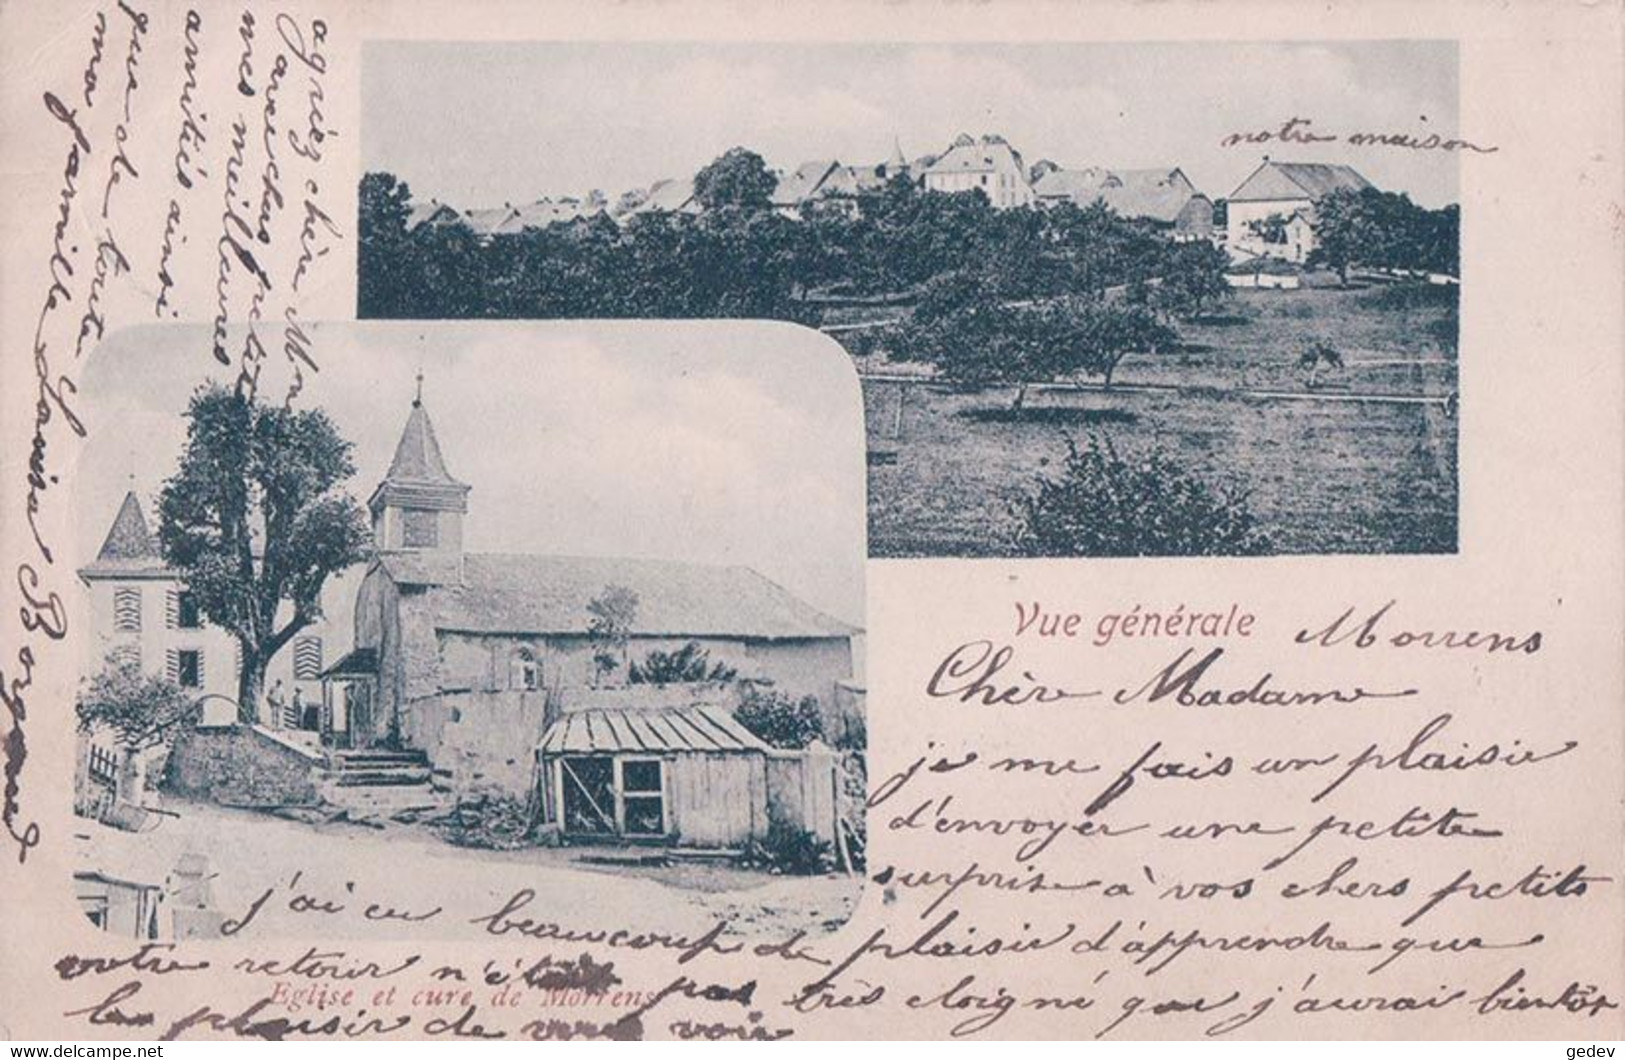 notre maison
Vue générale
Morrens
Chère Madame
je me fais un plaisir
d'envoyer une petite
surprise à vos chers petits
j'ai eu beaucoup de plaisir d'apprendre que
votre retour n'était pas très eloigné que j'aurai bientôt
le plaisir de vous voir
Eglise et cure de Morrens
agriez chère Mme
avec chers petits
mes meilleures
amitiés ainsi
que de toute
ma famille
Louisa